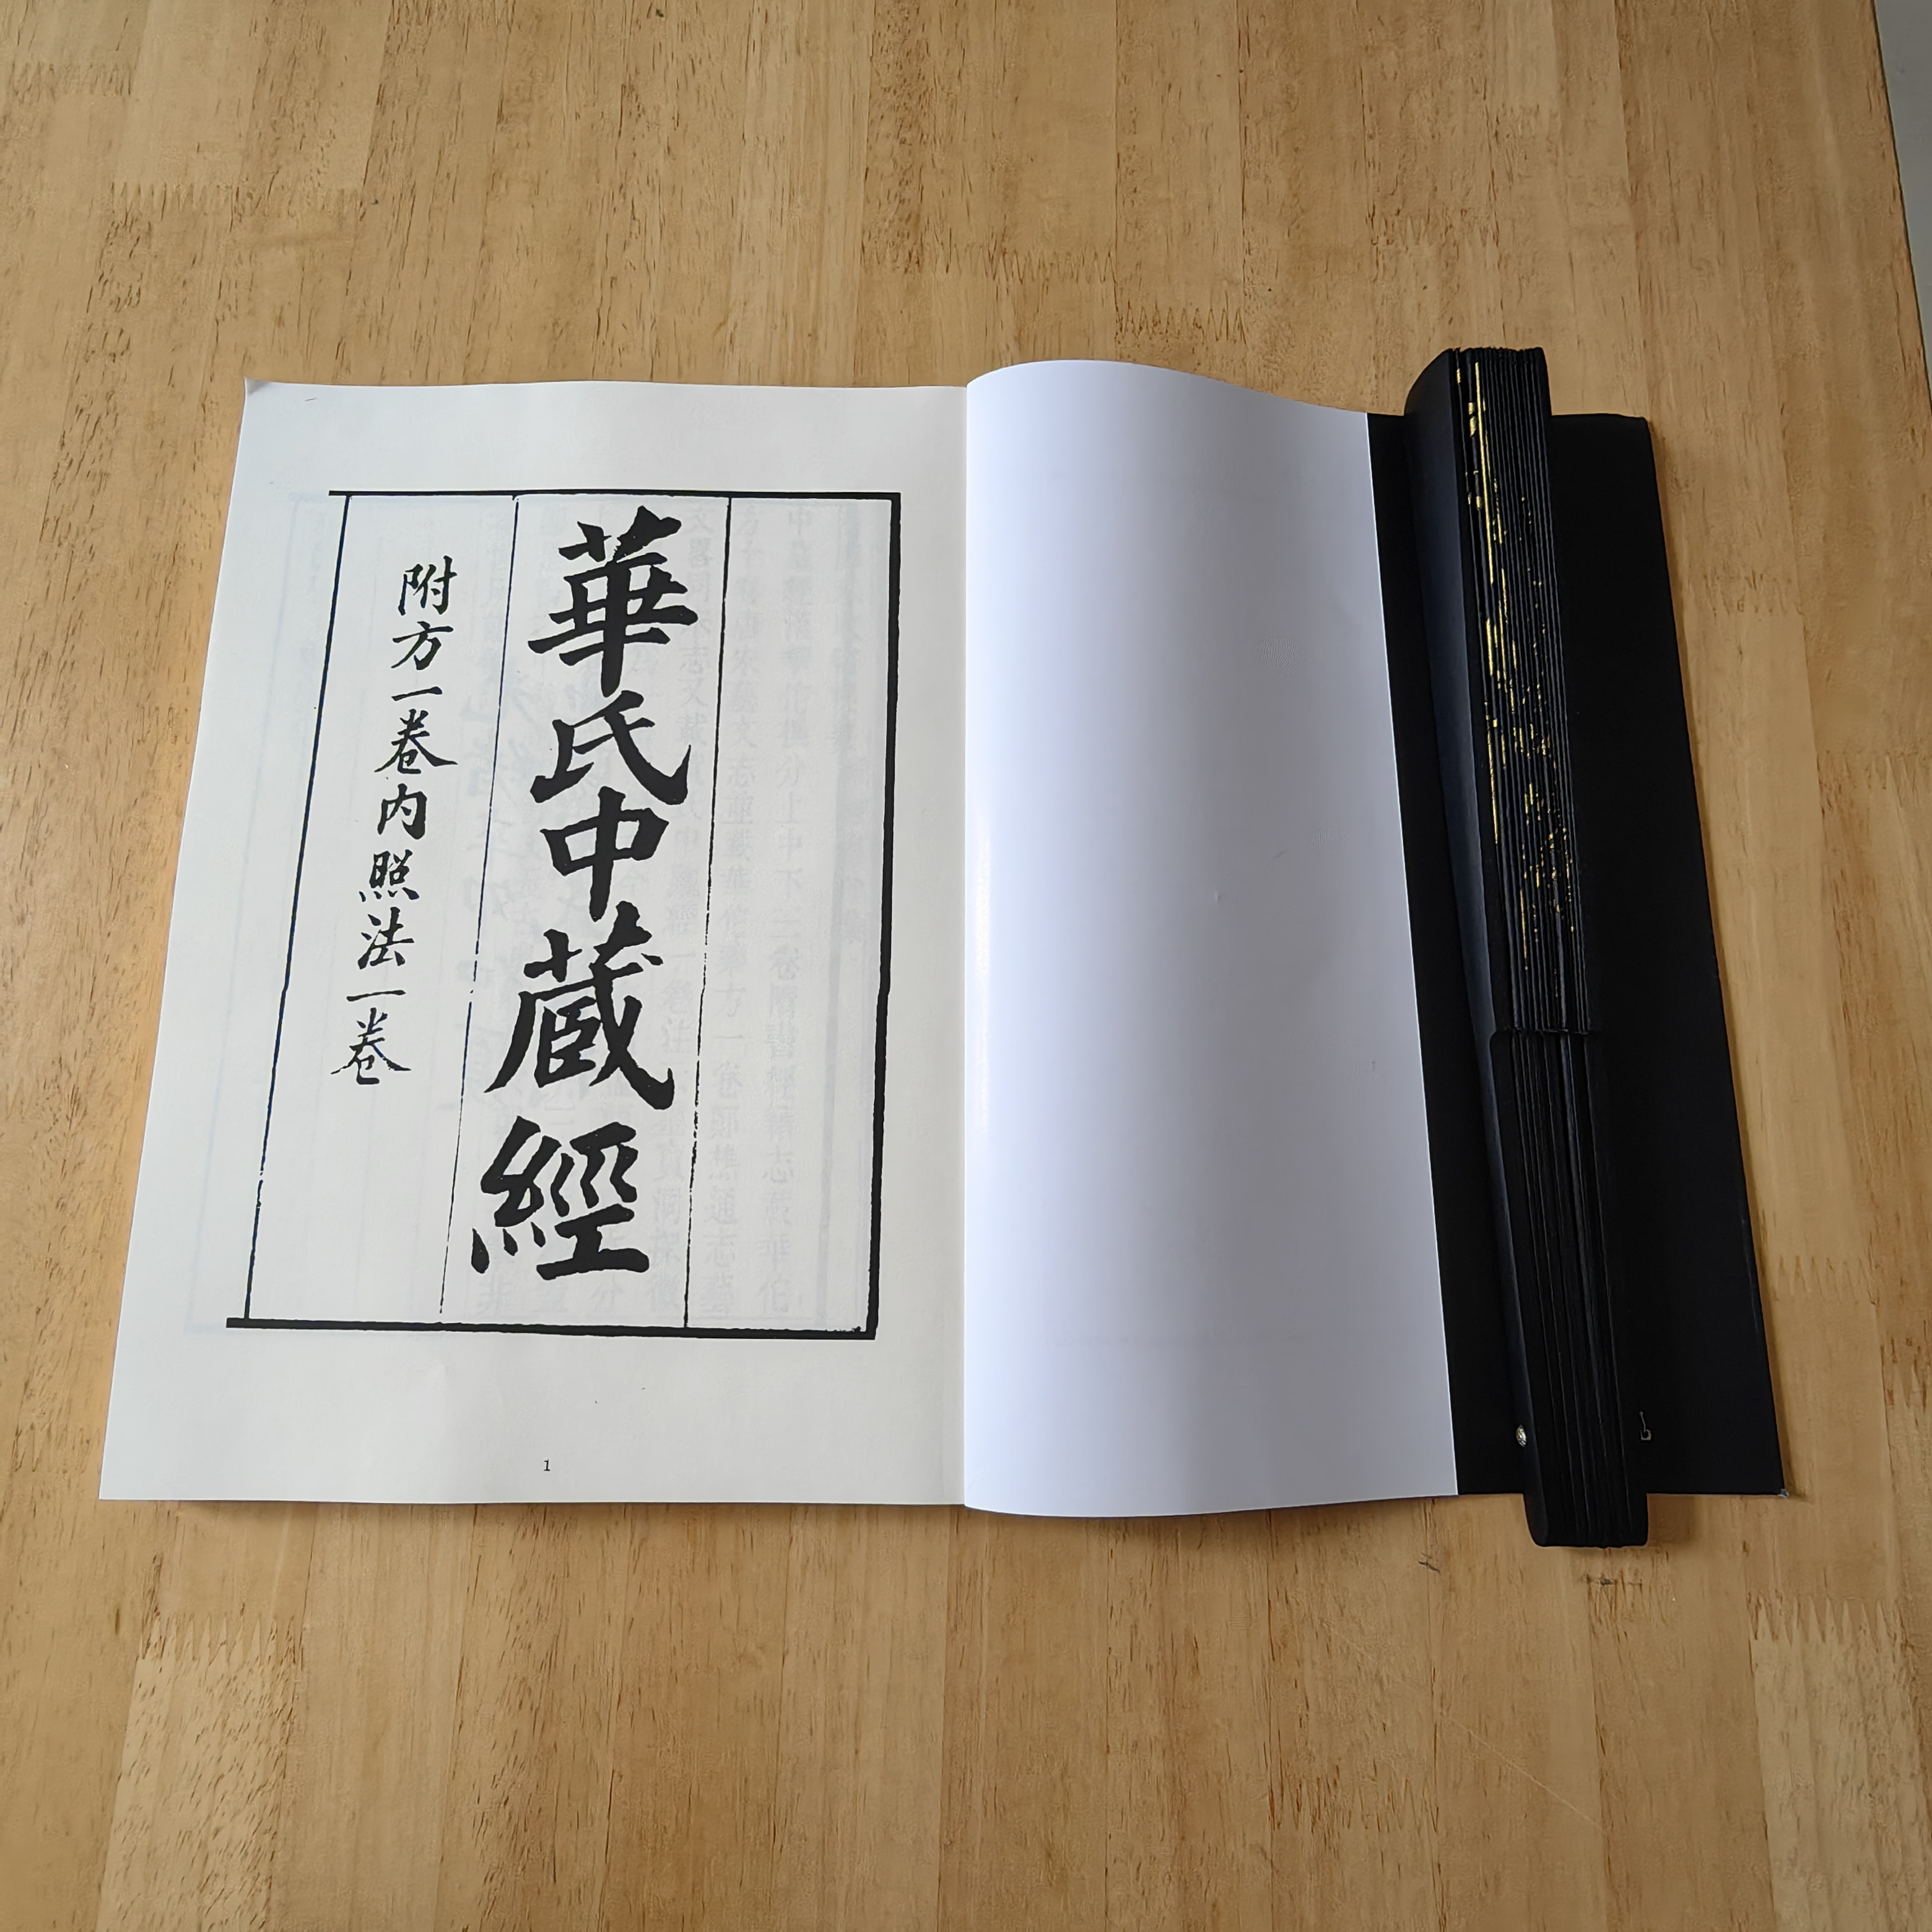 華氏中蔵經
附方一卷内照法一卷
1